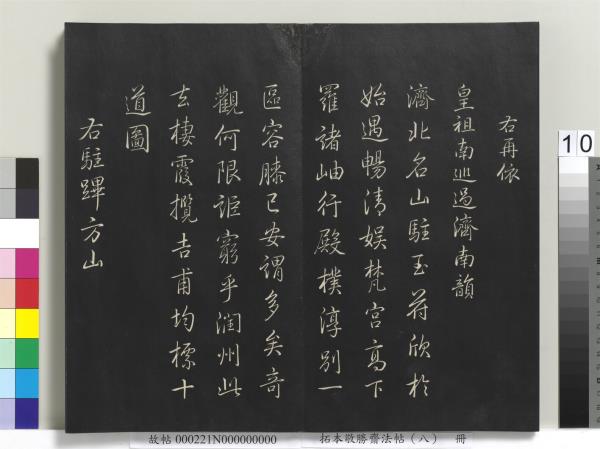 右再依
皇祖南巡過濟南韻
濟北名山駐玉符欣於
始遇暢清娱梵宮高下
羅諸岫行殿樸淳别一
區容膝已安謂多矣奇
觀何限詎窮乎潤州此
去棲霞攬吉甫均標十
道圖
右駐蹕方山
10
故帖 000221N000000000
拓本敬勝齋法帖（八） 冊